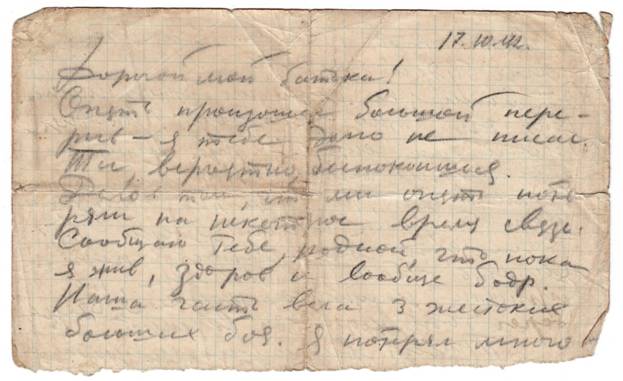 17.10.42.
Дорогой мой батька!
Опять произошел большой пере-
рыв – я тебе давно не писал.
Ты, вероятно, беспокоишься.
Дело в том, что мы опять поте
ряли на некоторое время связь.
Сообщаю тебе, родной, что пока
я жив, здоров и вообще бодр.
Наша часть вела 3 жестоких
больших боя. Я потерял много